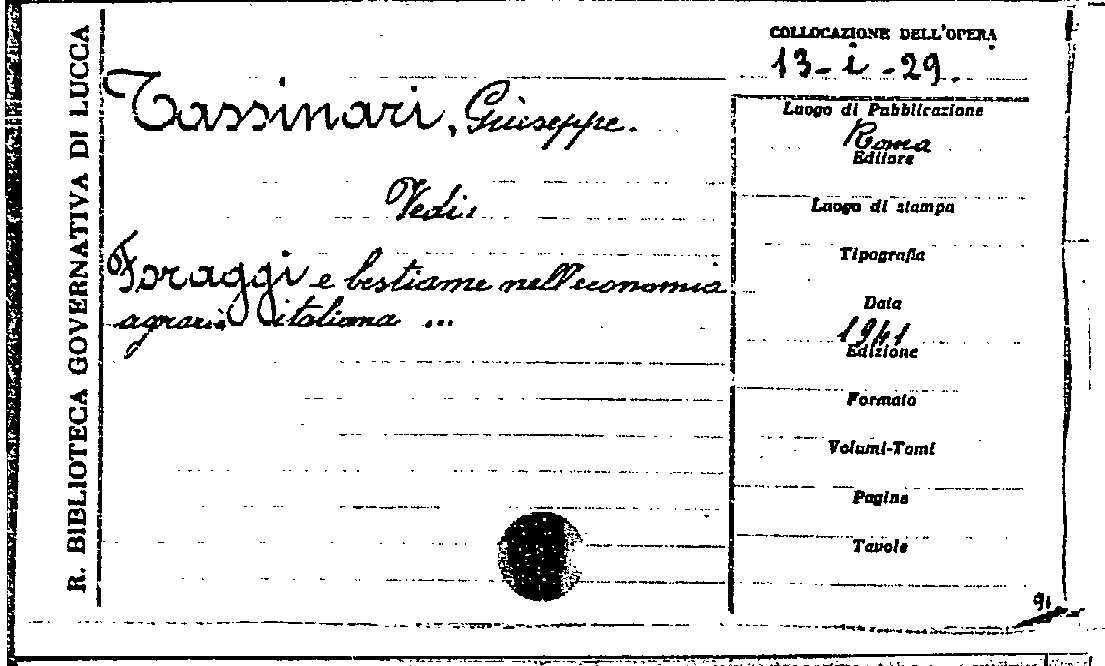 R. BIBLIOTECA GOVERNATIVA DI LUCCA
COLLOCAZIONE DELL'OPERA
13-i-29.
Tassinari, Giuseppe.
Vedi:
Foraggi e bestiame nell'economia
agraria italiana ...
Luogo di Pubblicazione
Roma
Editore
Luogo di stampa
Tipografia
Data
1941
Edizione
Formato
Volumi-Tomi
Pagine
Tavole
91